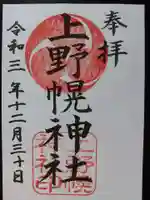 奉拝
上野幌神社
令和三年十二月三十日